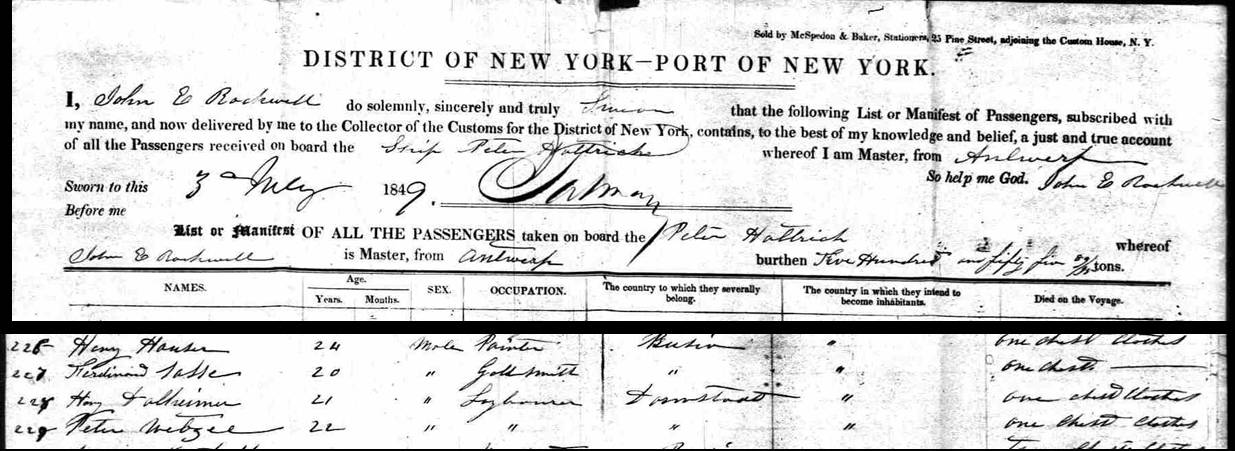 Sold by McSpedon & Baker, Stationers, 25 Pine Street, adjoining the Custom House, N. Y.
DISTRICT OF NEW YORK—PORT OF NEW YORK.
I, John E Rockwell do solemnly, sincerely and truly Swear that the following List or Manifest of Passengers, subscribed with
my name, and now delivered by me to the Collector of the Customs for the District of New York, contains, to the best of my knowledge and belief, a just and true account
of all the Passengers received on board the Ship Peter Hattrick whereof I am Master, from Antwerp
So help me God. John E Rockwell
Sworn to this 3d July 1849.
Before me
List or Manifest OF ALL THE PASSENGERS taken on board the Peter Hattrick whereof
John E Rockwell is Master, from Antwerp burthen Five Hundred and fifty five tons.
NAMES. Age. Years. Months. SEX. OCCUPATION. The country to which they severally belong. The country in which they intend to become inhabitants. Died on the Voyage.
226 Henry Hauser 24 Male Painter " one chest Clothes
227 Ferdinand Sasse 20 " Goldsmith " " one chest
228 Hy Dalheimer 21 " Laybourer Darmstadt " one chest Clothes
229 Peter Wetzel 22 " " " " one Chest Clothes